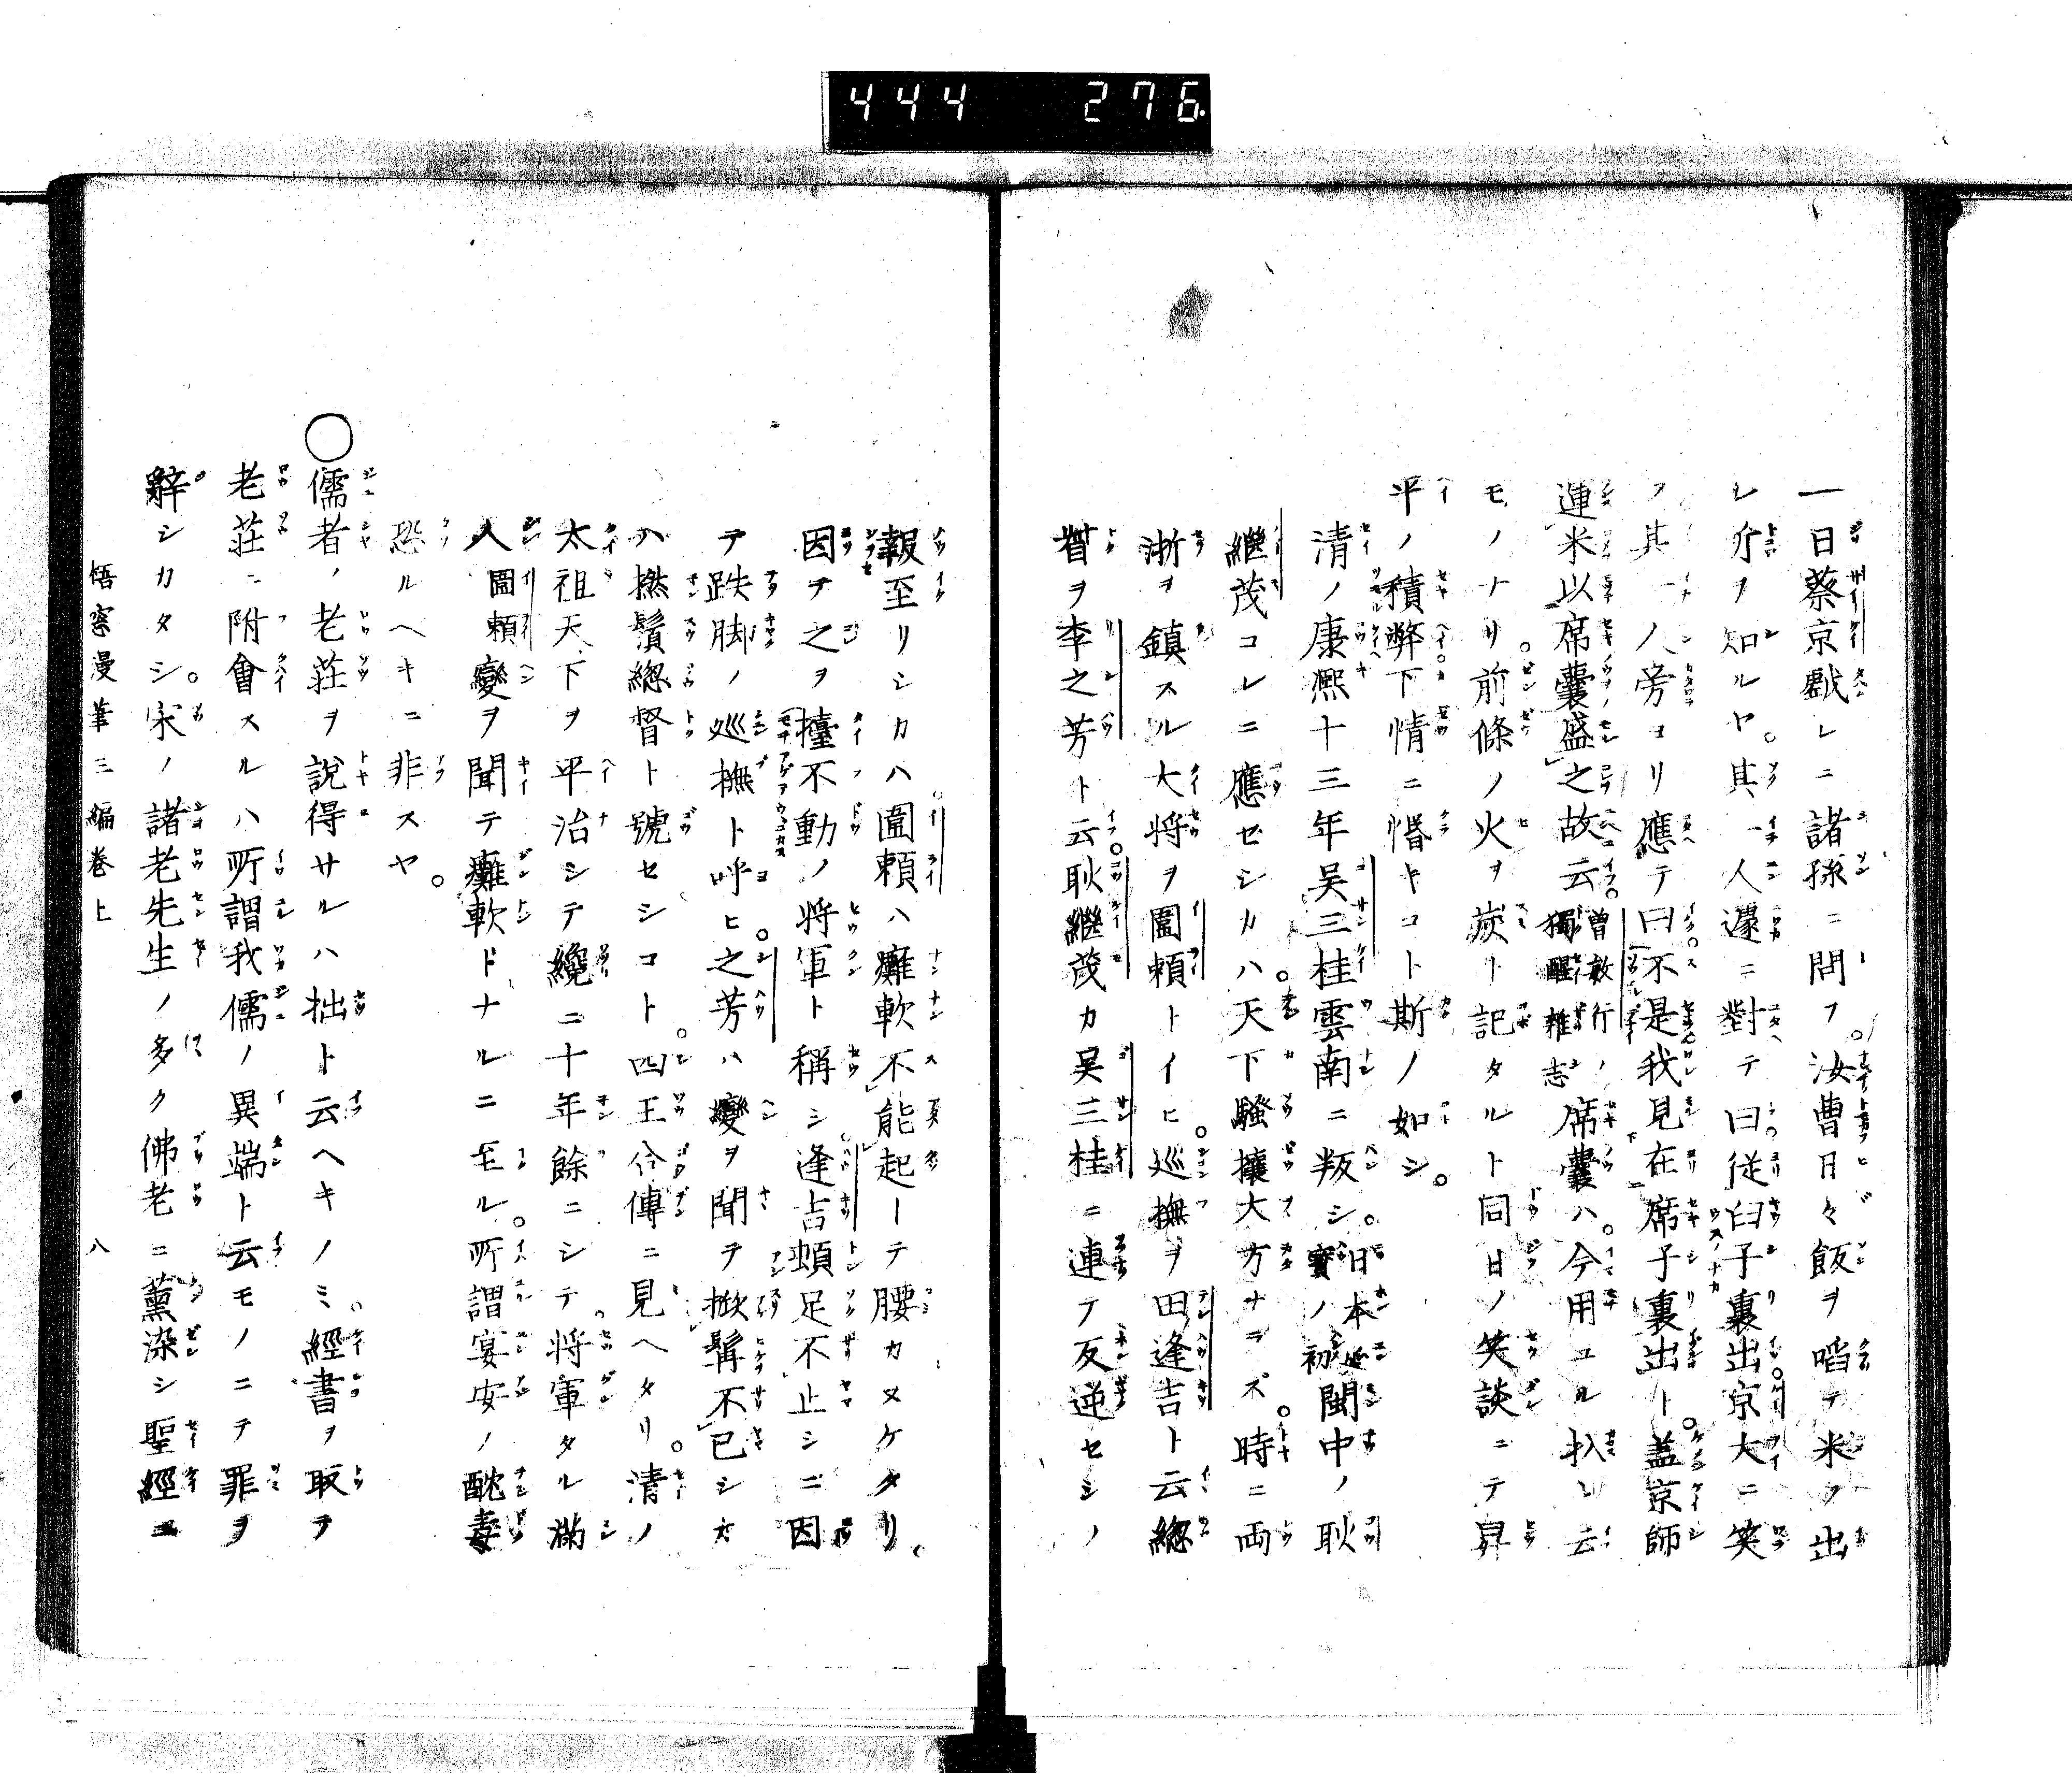 444 276
一日蔡京戯レニ諸孫ニ問フ。汝曹日々飯ヲ啗テ米ノ出
レ介ヲ知ルヤ。其一人遽ニ對テ曰従臼子裏出京大ニ笑
フ其一人旁ヨリ應テ曰不是我見在席子裏出ト。盖京師
運米以席囊盛之故云。曽敏行ノ獨醒雜志席囊ハ。今用ユル扒ト云
モノナリ。前條ノ火ヲ莢ト記タルト同日ノ笑談ニテ昇
平ノ積弊下情ニ惛キコト斯ノ如シ。
清ノ康熙十三年呉三桂雲南ニ叛シ。日本延寶ノ初閩中ノ耿
継茂コレニ應ゼシカハ。天下騒攘大方ナラズ。時ニ両
浙ヲ鎮スル大将ヲ圖頼トイヒ。巡撫ヲ田逢吉ト云総
督ヲ李之芳ト云。耿継茂カ呉三桂ニ連テ反逆セシノ
報至リシカハ。圖頼ハ癱軟不能起ーテ腰カヌケタリ。
因テ之ヲ擡不動ノ将軍ト稱シ逢吉頓足不止シニ因
テ跌脚ノ巡撫ト呼ヒ。之芳ハ變ヲ聞テ掀髯不已シカ
ハ撚鬚総督ト號セシコト。四王合傳ニ見ヘタリ。清ノ
太祖天下ヲ平治シテ纔ニ十年餘ニシテ。将軍タル満
人圖頼變ヲ聞テ癱軟ドナルニ至ル。所謂宴安ノ酖毒
恐ルヘキニ非スヤ。
○儒者ノ老荘ヲ說得サルハ拙ト云ヘキノミ。經書ヲ取テ
老荘ニ附會スルハ所謂我儒ノ異端ト云モノニテ罪ヲ
辭シカタシ。宋ノ諸老先生ノ多ク佛老ニ薫染シ聖經ニ
梧窓漫筆三編巻上 八